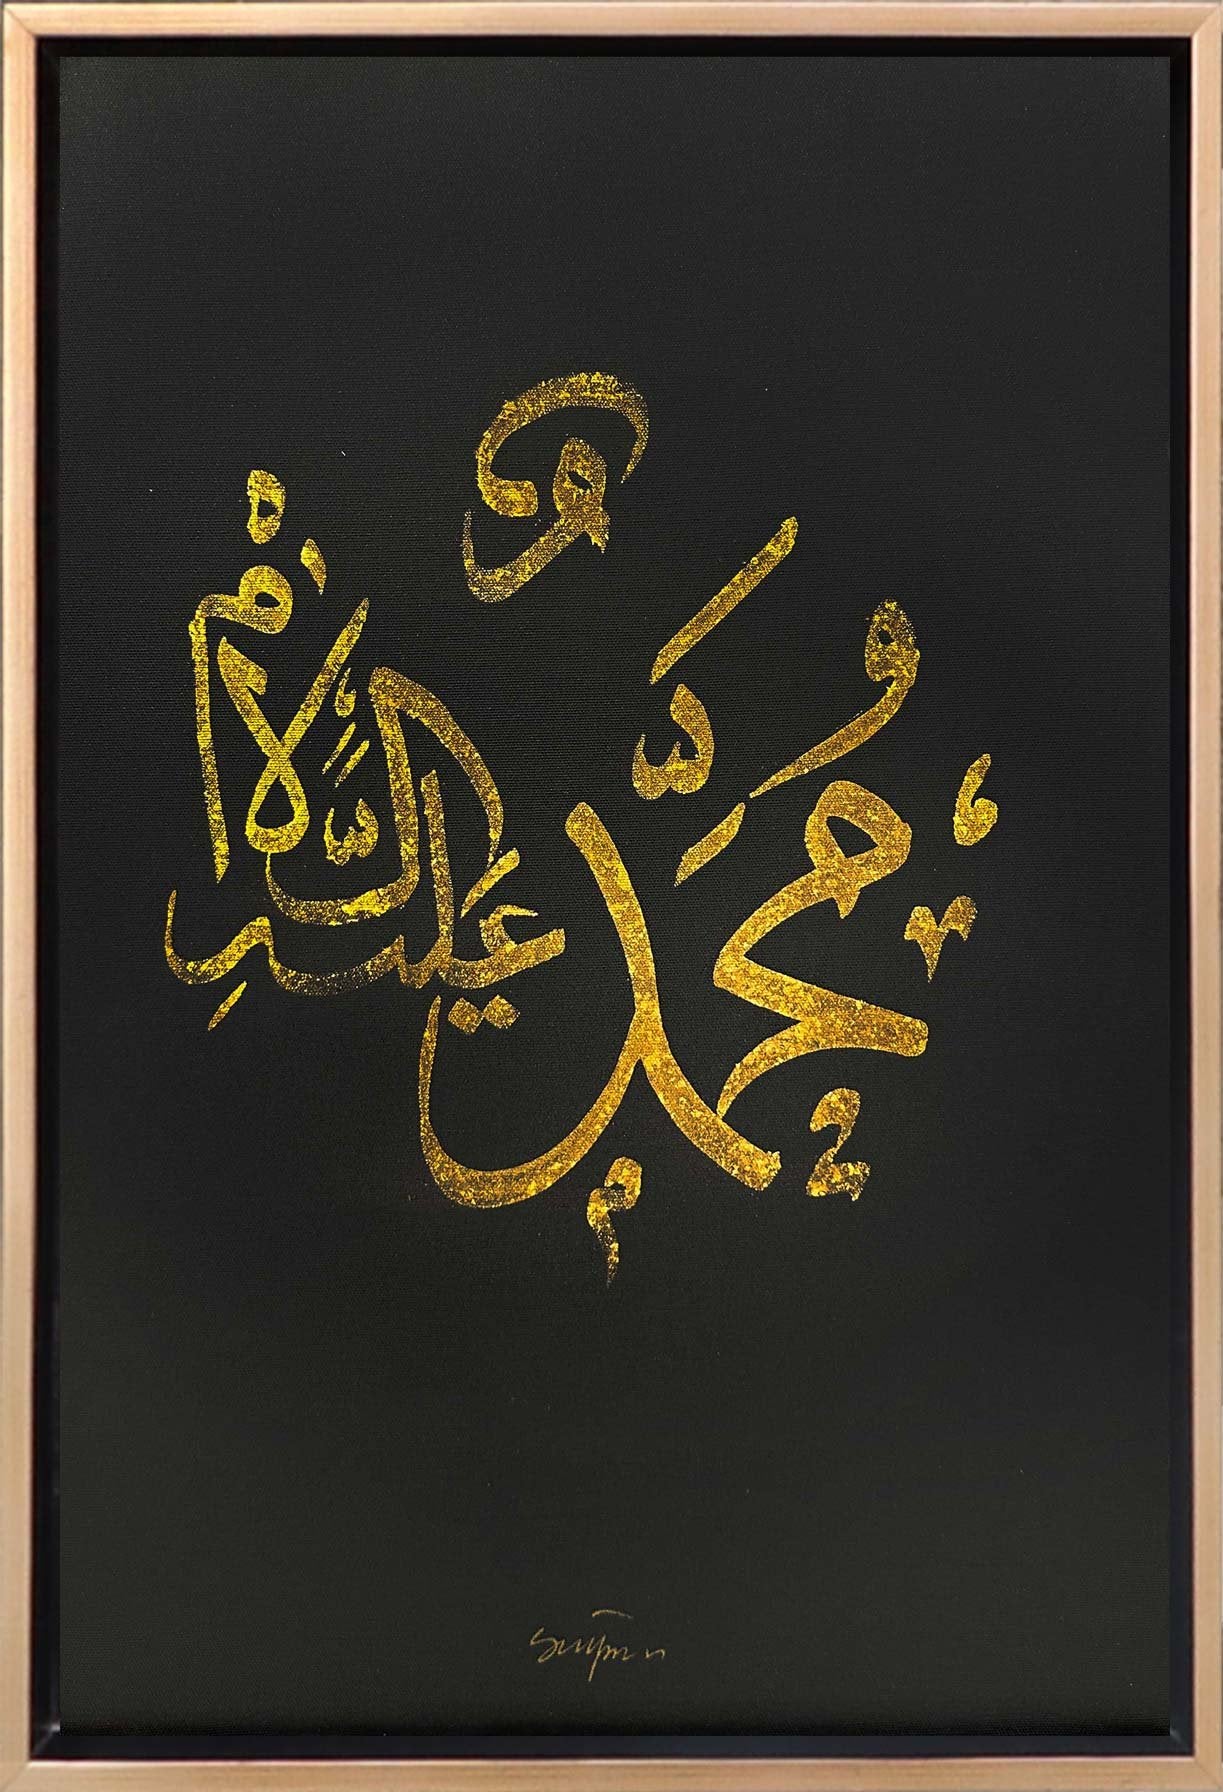 مُحَمَّد عَلَيْهِ السَّلَامُ